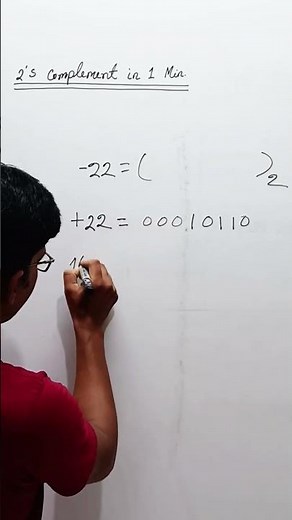 2's Complement in 1 Min
-22 = ( )2
+22 = 00010110
1